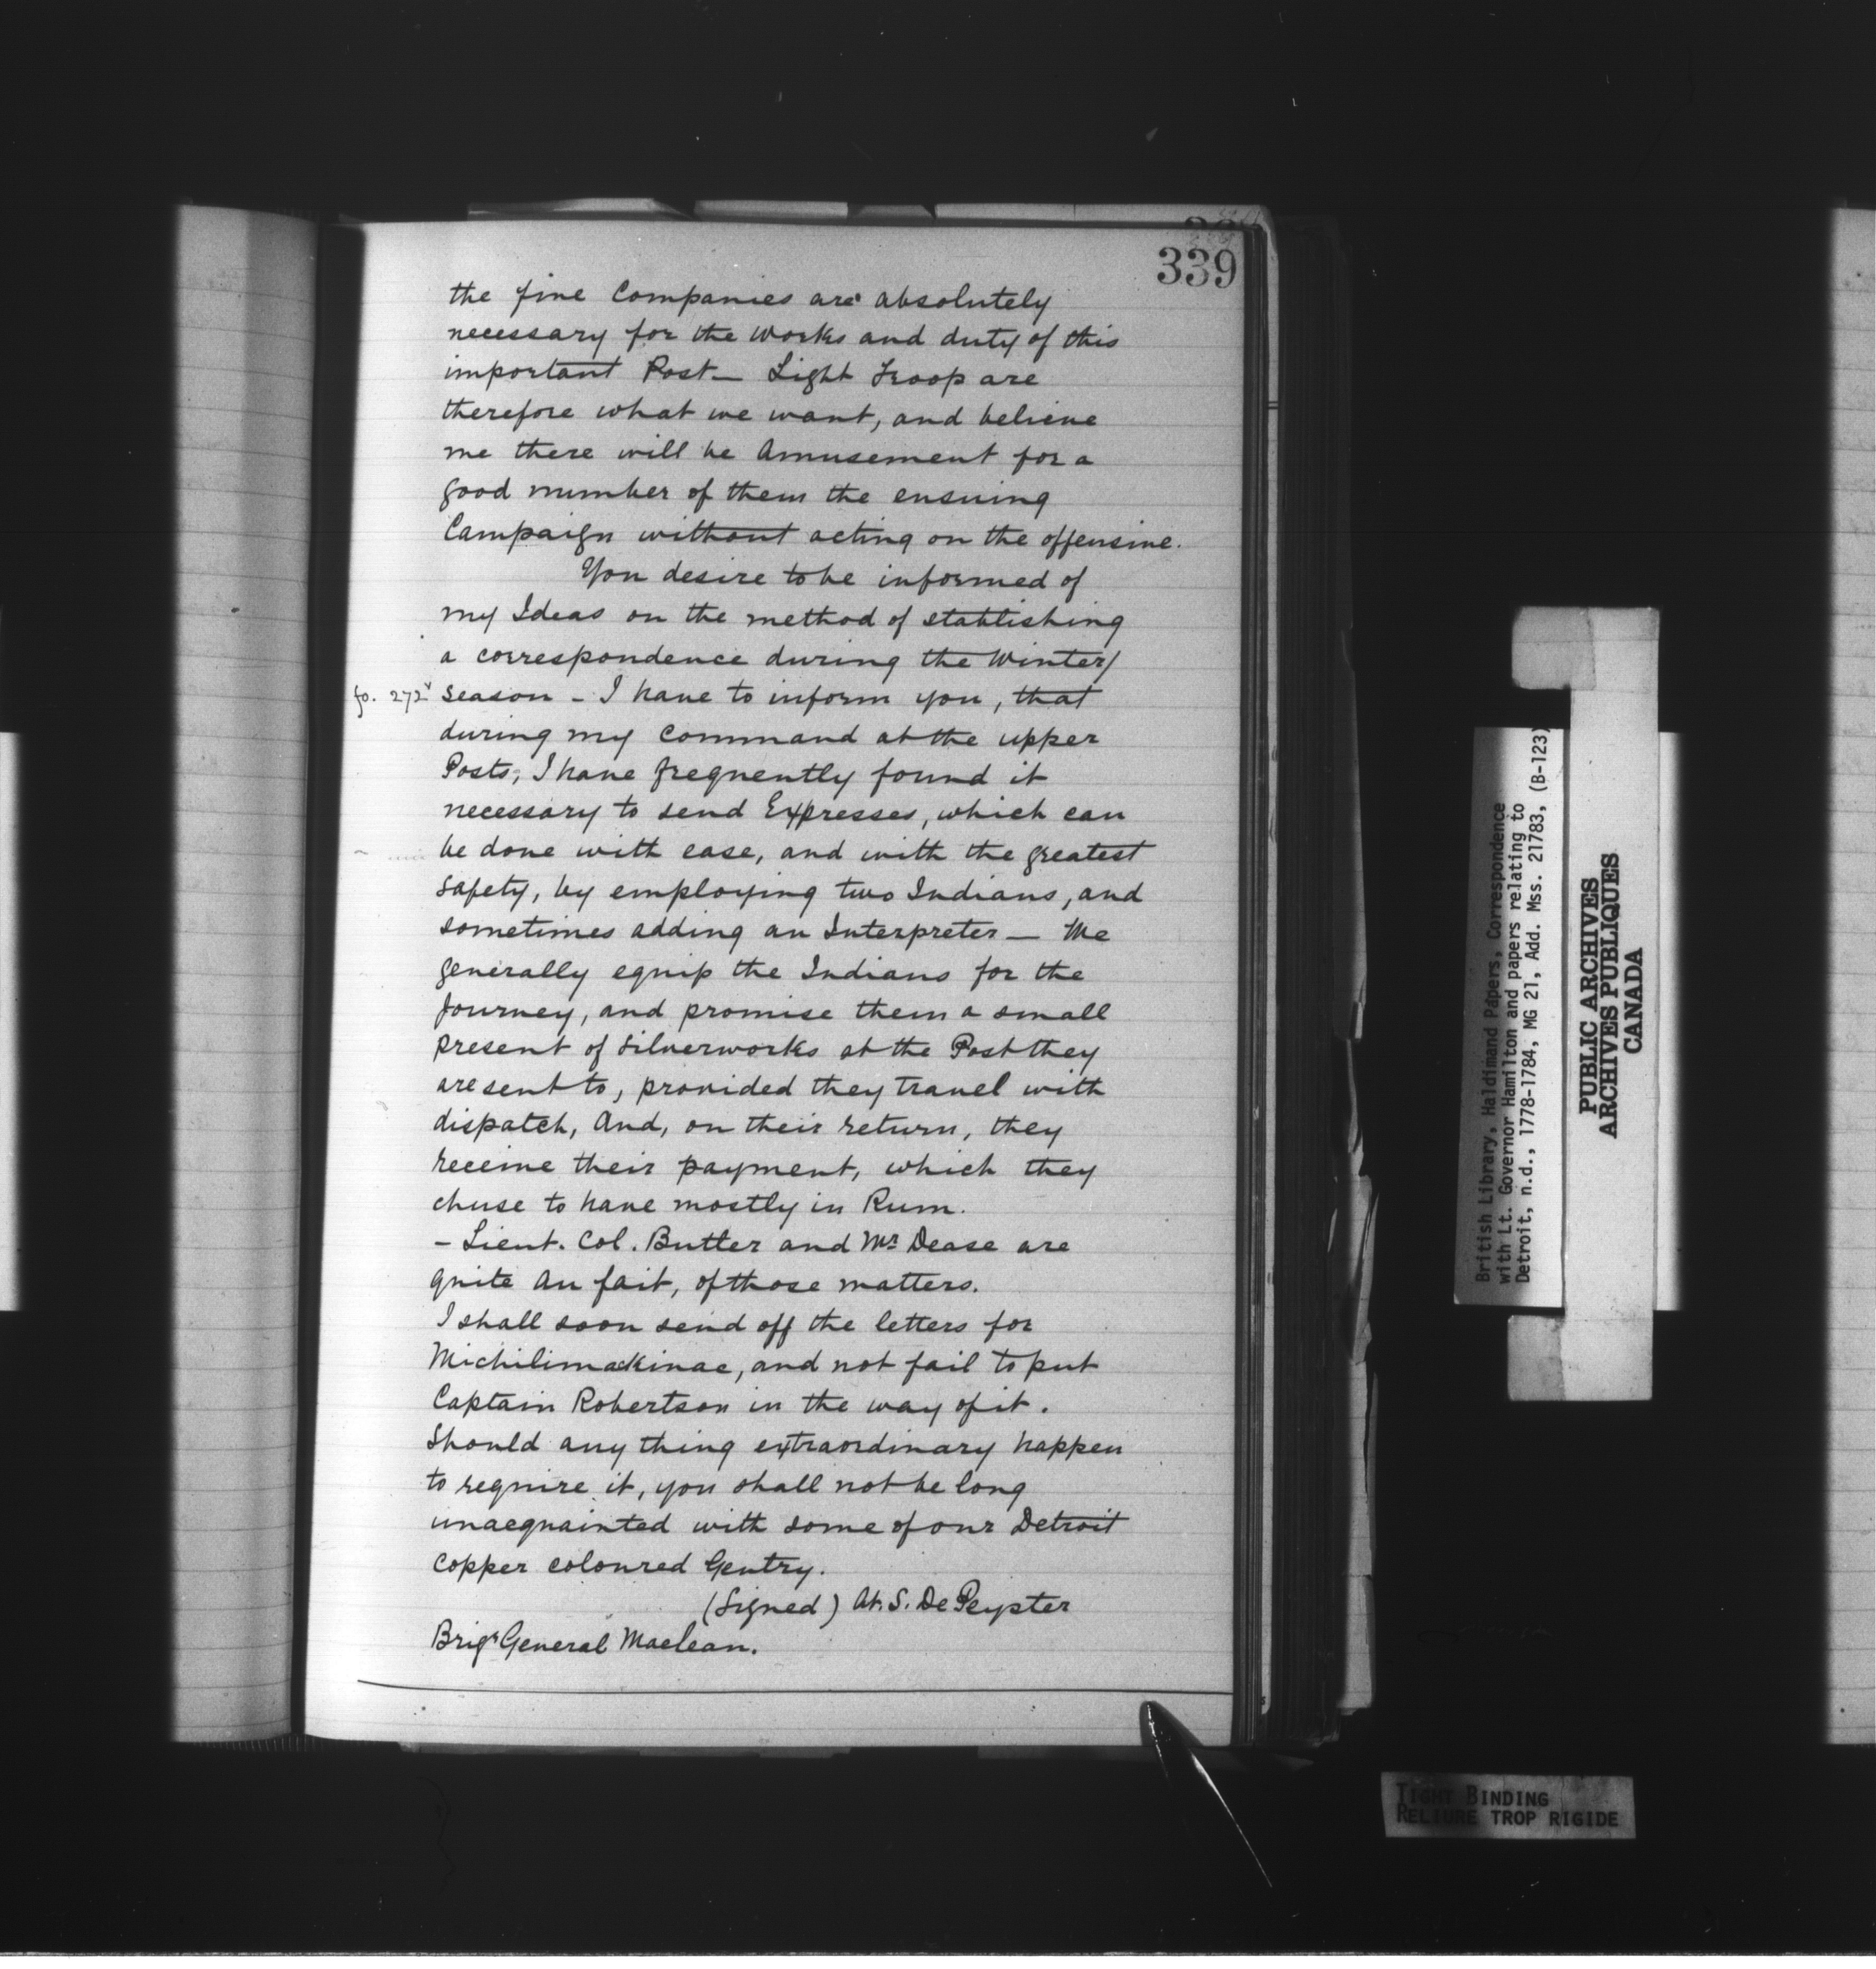 339
the five Companies are absolutely
necessary for the Works and duty of this
important Post — Light Troop are
therefore what we want, and believe
me there will be Amusement for a
good number of them the ensuing
Campaign without acting on the offensive.
You desire to be informed of
my Ideas on the method of establishing
a correspondence during the Winter/
fo. 272v season - I have to inform you, that
during my Command at the upper
Posts, I have frequently found it
necessary to send Expresses, which can
be done with ease, and with the greatest
safety, by employing two Indians, and
sometimes adding an Interpreter — We
generally equip the Indians for the
Journey, and promise them a small
present of Silverworks at the Post they
are sent to, provided they travel with
dispatch, And, on their return, they
receive their payment, which they
chuse to have mostly in Rum.
- Lieut. Col. Butler and Mr Dease are
quite au fait, of those matters.
I shall soon send off the letters for
Michilimackinac, and not fail to put
Captain Robertson in the way of it.
Should any thing extraordinary happen
to require it, you shall not be long
unacquainted with some of our Detroit
Copper coloured Gentry.
(Signed) At. S. De Peyster
Brigr General Maclean.
British Library, Haldimand Papers, Correspondence
with Lt. Governor Hamilton and papers relating to
Detroit, n.d., 1778-1784, MG 21, Add. Mss. 21783, (B-123)
PUBLIC ARCHIVES
ARCHIVES PUBLIQUES
CANADA
TIGHT BINDING
RELIURE TROP RIGIDE